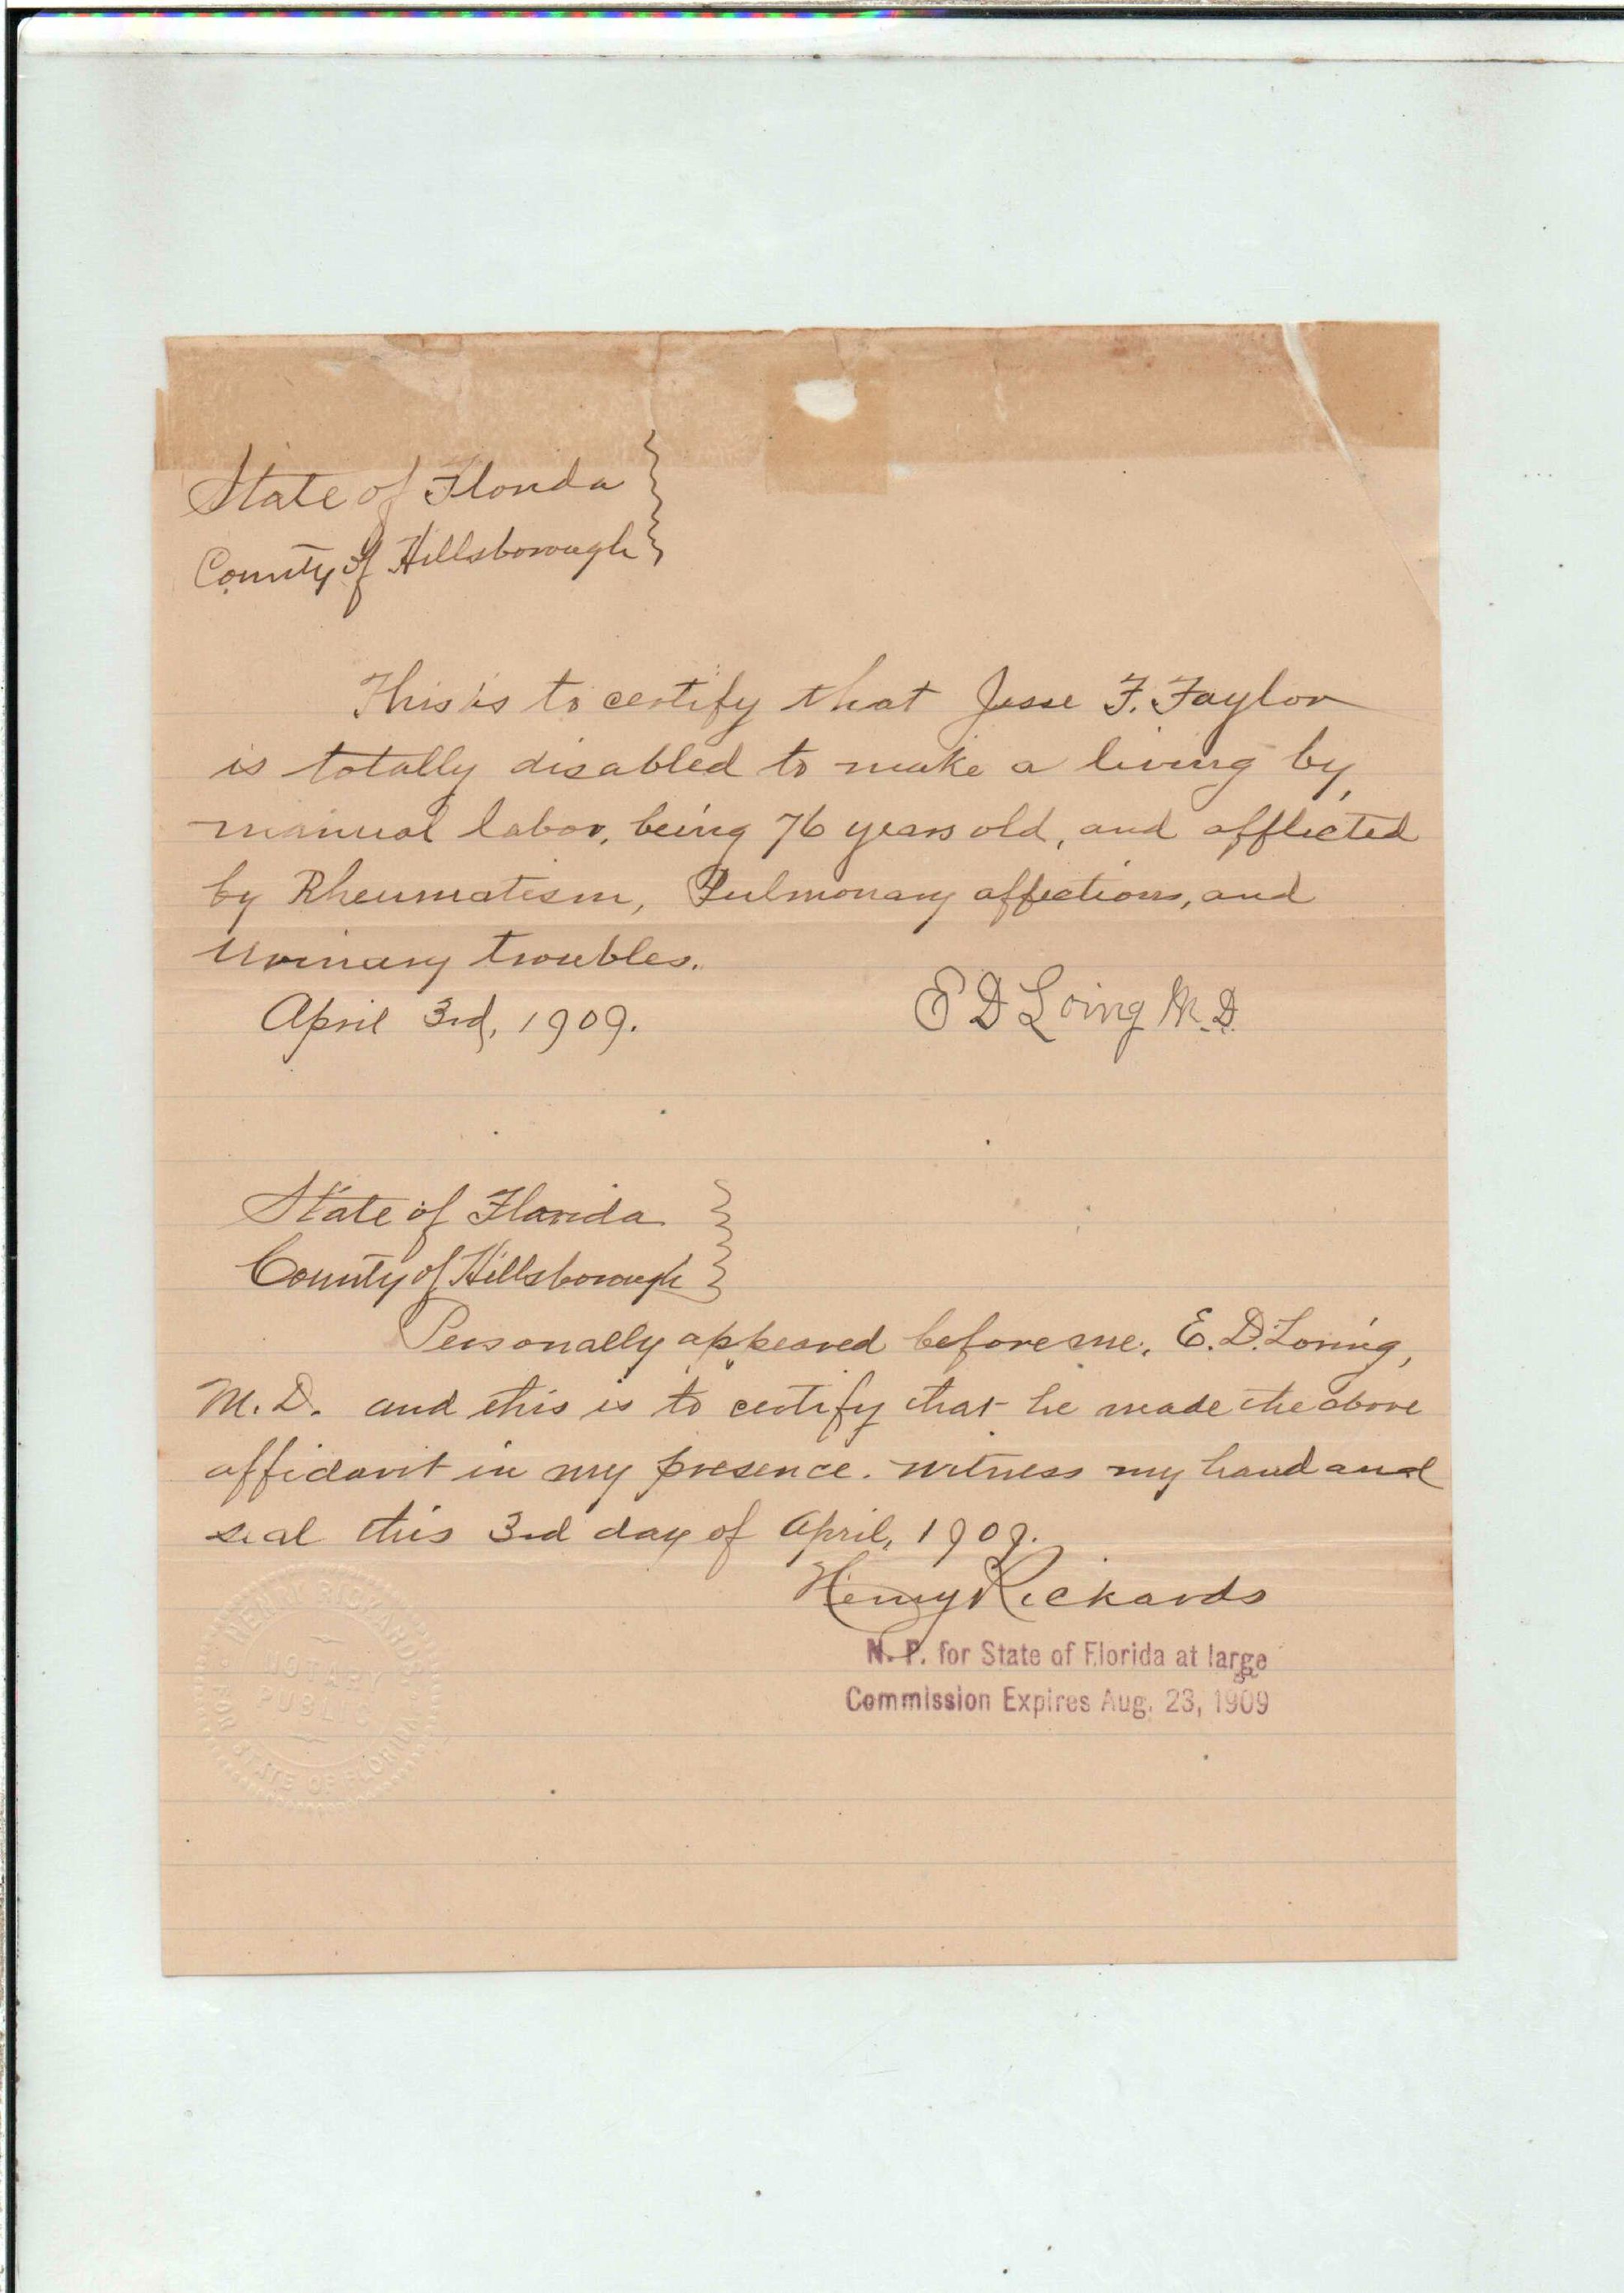 State of Florida
County of Hillsborough
This is to certify that Jesse F. Taylor
is totally disabled to make a living by
manual labor, being 76 years old, and afflicted
by Rheumatism, Pulmonary affections, and
Urinary troubles.
April 3rd, 1909.
E D Loing M.D.
State of Florida
County of Hillsborough
Personally appeared before me, E. D. Loring,
M.D. and this is to certify that he made the above
affidavit in my presence. Witness my hand and
seal this 3rd day of April, 1909.
Henry Rickards
N. P. for State of Florida at large
Commission Expires Aug. 23, 1909
HENRY RICKARDS
NOTARY
PUBLIC
FOR STATE OF FLORIDA